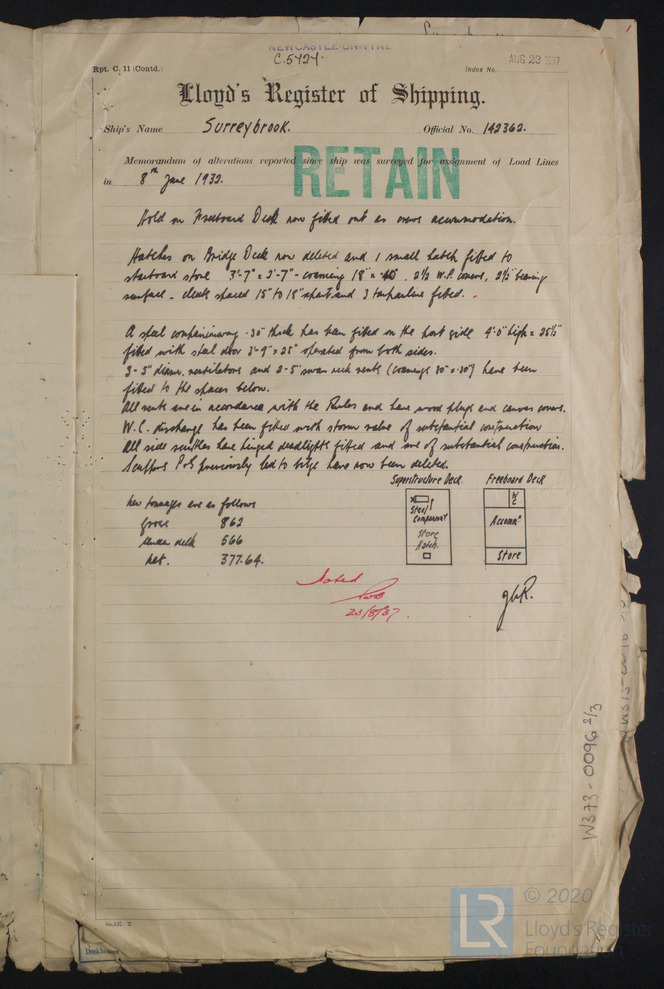 NEWCASTLE-ON-TYNE
C.5424.
Rpt. C. 11 (Contd.)
Index No.
AUG 23 1937
Lloyd's Register of Shipping.
Ship's Name Surreybrook. Official No. 142362.
Memorandum of alterations reported since ship was surveyed for assignment of Load Lines
in 8th June 1932.
RETAIN
Hold on Freeboard Deck now fitted out as crews accommodation.
Hatches on Bridge Deck now deleted and 1 small hatch fitted to
starboard store 3'-7" x 3'-7" - coaming 18" x .40, 2½ W.P. covers, 2½" bearing
surface - cleats spaced 15" to 18" apart and 3 tarpaulins fitted.
A steel companionway .30" thick has been fitted on the port side 4'-0" high x 25½"
fitted with steel door 3'-9" x 25" operated from both sides.
3 - 5" diam. ventilators and 2-5" swan neck vents (coamings 30" x .30") have been
fitted to the spaces below.
All vents are in accordance with the Rules and have wood plugs and canvas covers.
W.C. discharge has been fitted with storm valve of substantial construction
All side scuttles have hinged deadlights fitted and are of substantial construction.
Scuppers P & S previously led to bilge have now been deleted.
Superstructure Deck Freeboard Deck
New tonnages are as follows
gross 862
under deck 566
net. 377.64.
Steel
Companionwy
Store
Hatch.
W
C
Accomn
Store
Noted
23/8/37.
W373-0096 2/3
© 2020
LR
Lloyd's Register
Foundation